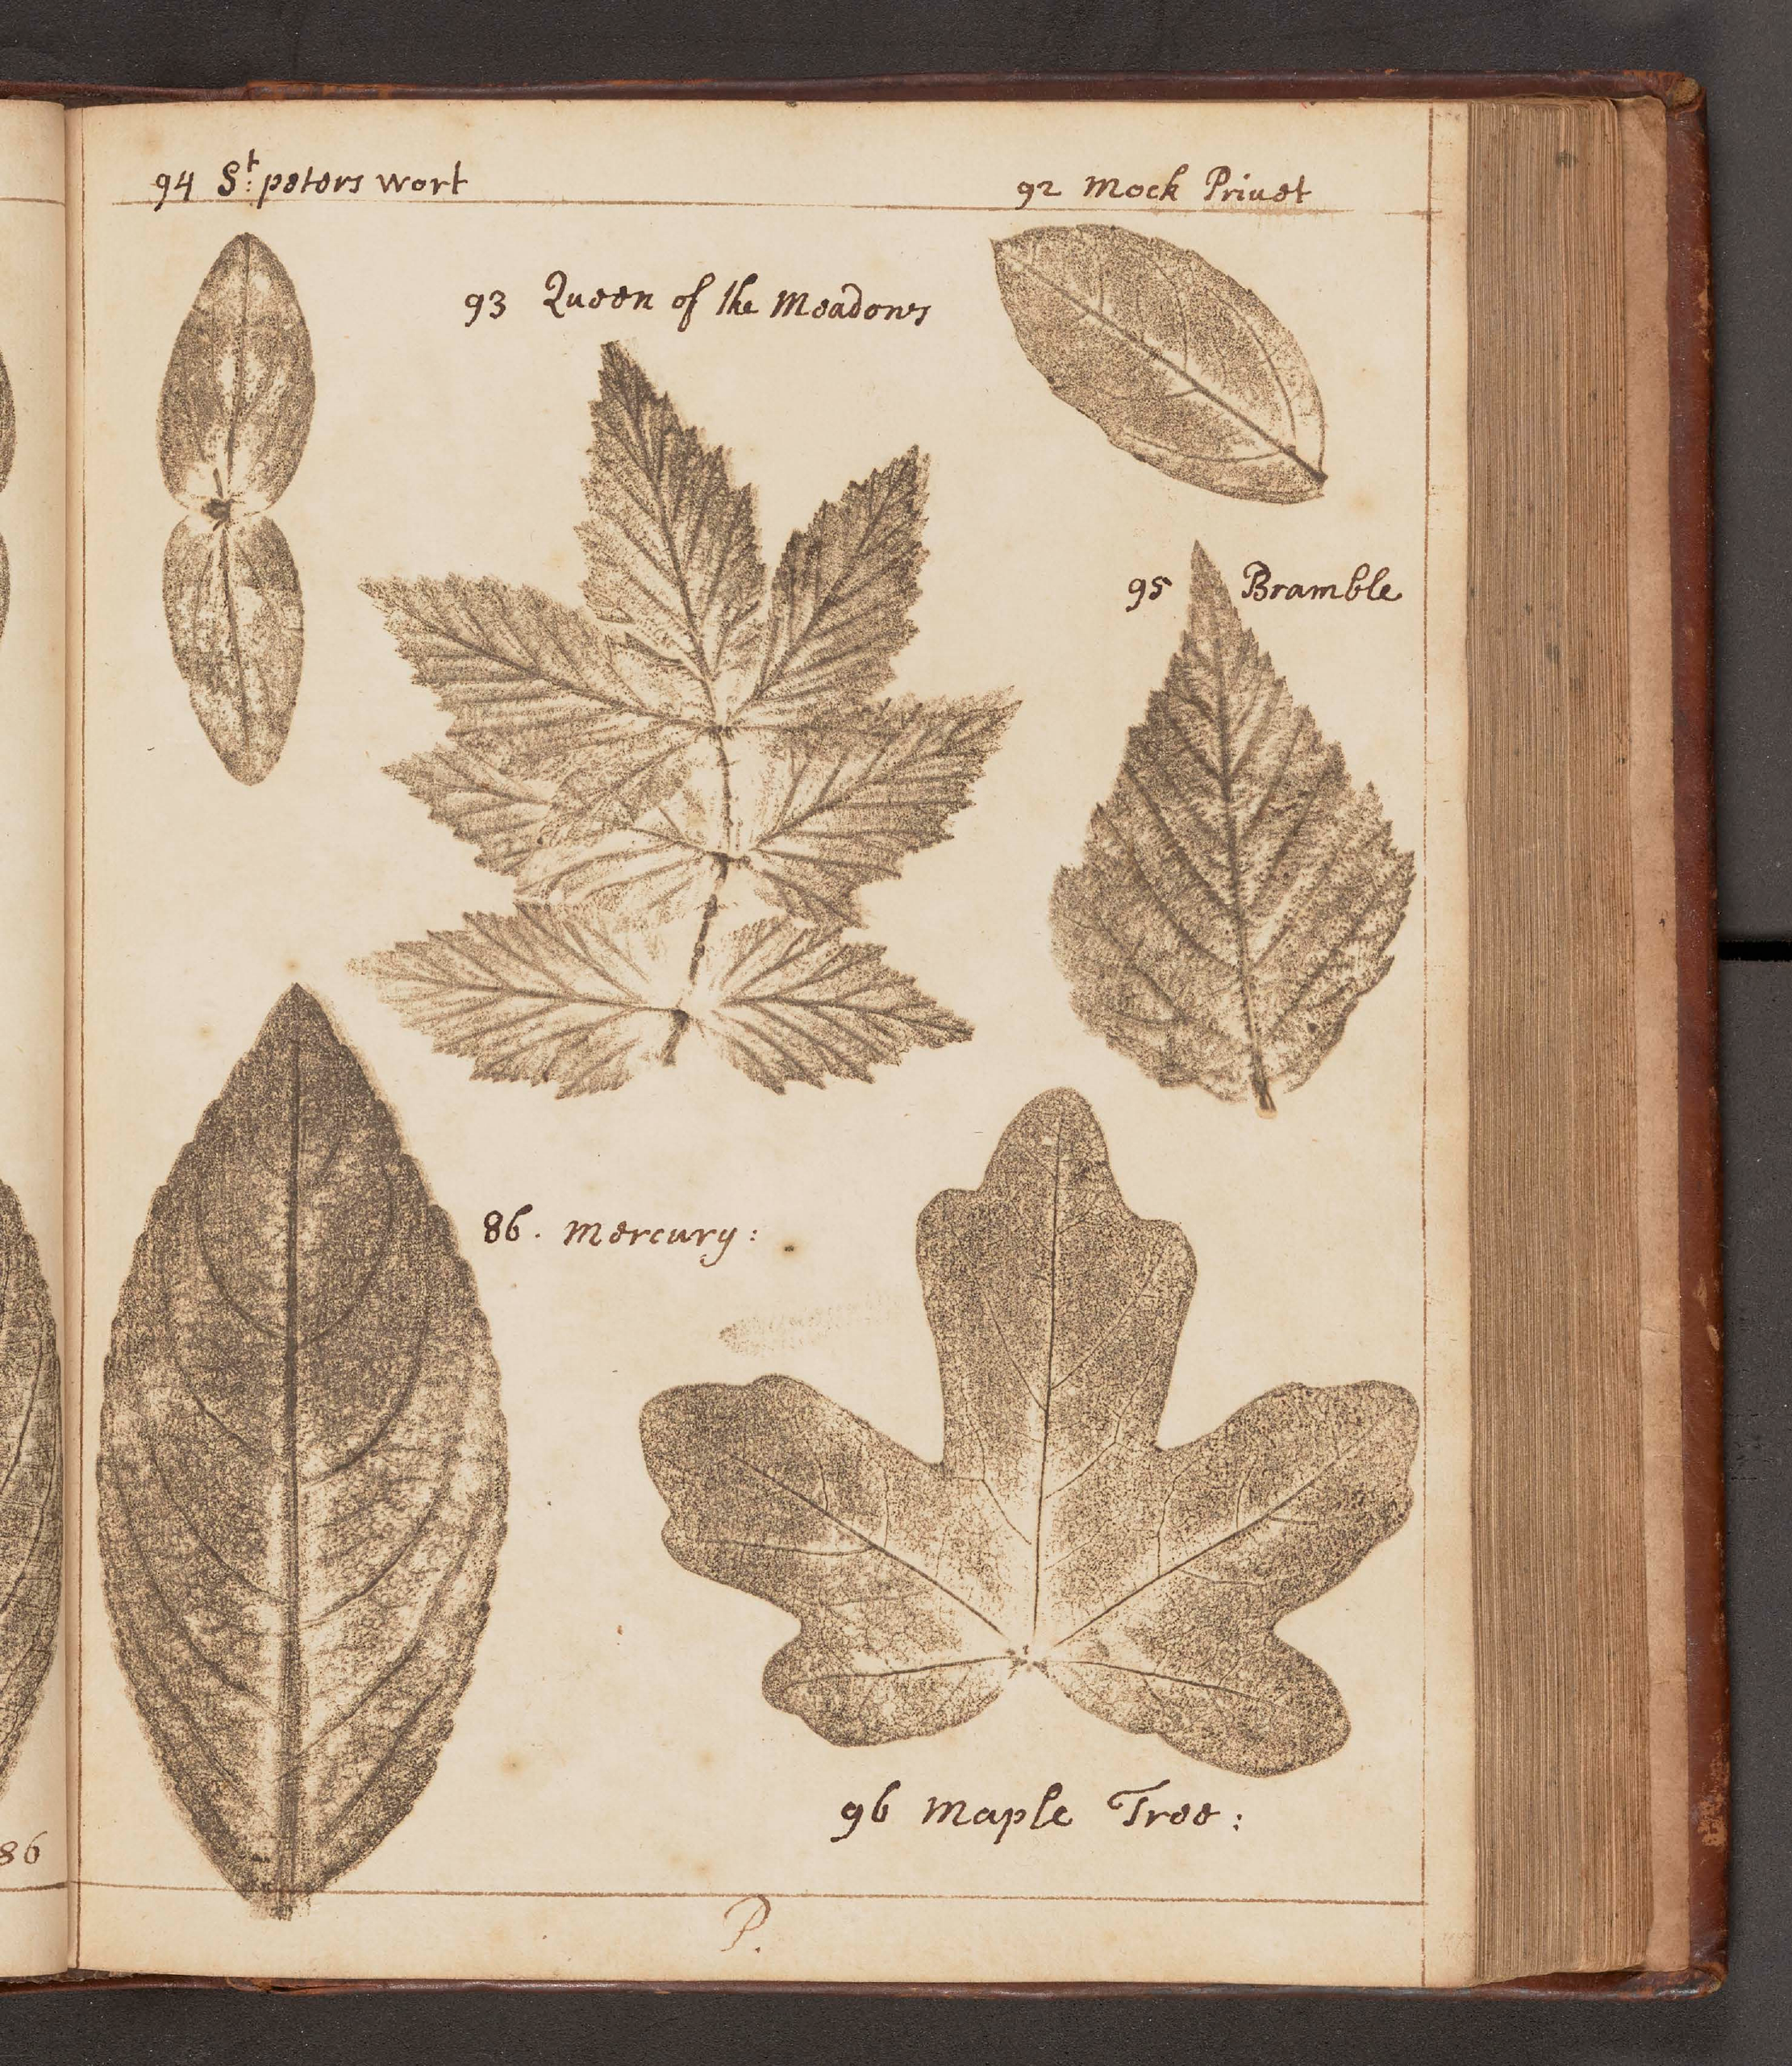 94 St: peters wort
92 Mock Privet
93 Queen of the Meadows
95 Bramble
86. Mercury:
96 Maple Tree:
86
P.